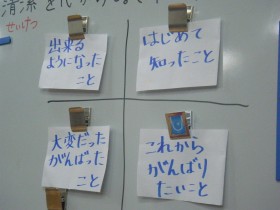 せいけつ
出来る
ようになった
こと
はじめて
知ったこと
大変だった
がんばった
こと
これから
がんばり
たいこと